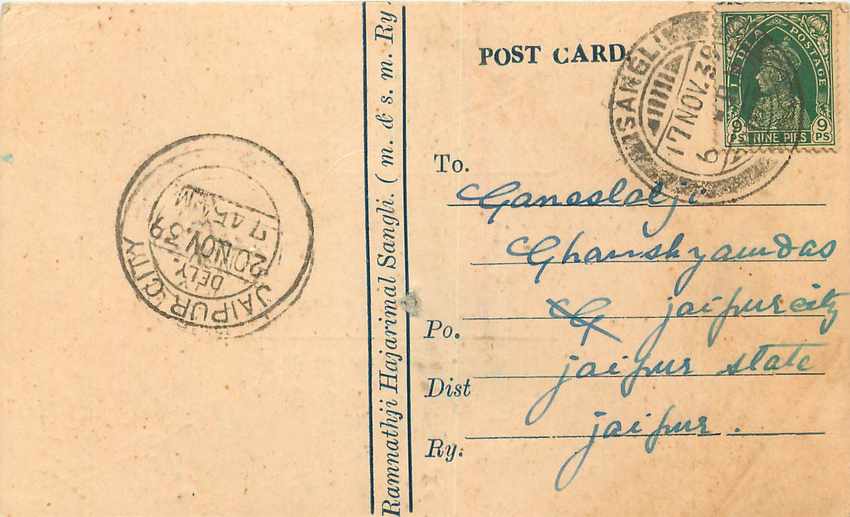 POST CARD
SANGLI
17 NOV. 39
INDIA POSTAGE
9 PS NINE PIES 9 PS
To.
Ganeshlalji
Ghanshyamdas
Po. jaipur city
Dist jaipur state
Ry: jaipur.
Ramnathji Hajarimal Sangli. ( m. & s. m. Ry.
JAIPUR CITY
DELY.
20 NOV. 39
7.45